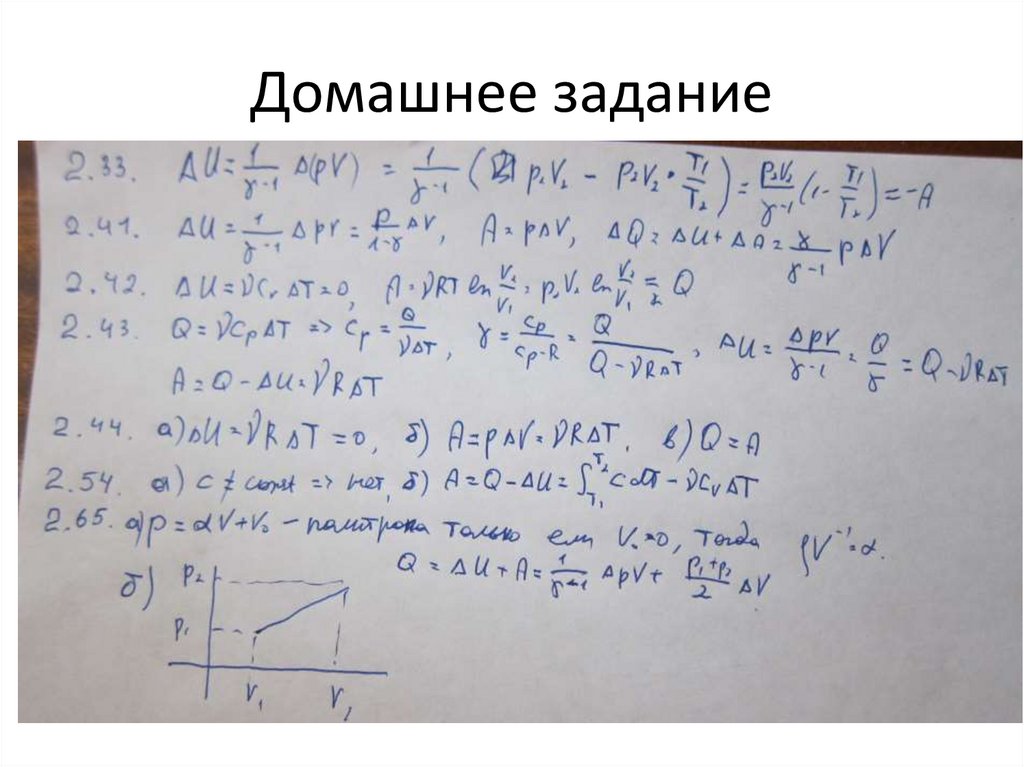 Домашнее задание
2.33. ΔU = 1/(γ-1) Δ(pV) = 1/(γ-1) ( p₂V₂ - p₂V₂ · T₁/T₂ ) = p₂V₂/(γ-1) (1 - T₁/T₂) = -A
2.41. ΔU = 1/(γ-1) ΔpV = p/(1-γ) ΔV, A = pΔV, ΔQ = ΔU + ΔA = γ/(γ-1) pΔV
2.42. ΔU = νCᵥ ΔT = 0, A = νRT ln V₂/V₁ = p₁V₁ ln V₂/V₁ = Q
2.43. Q = νCpΔT => Cp = Q/(νΔT), γ = Cp/(Cp-R) = Q/(Q-νRΔT), ΔU = ΔpV/(γ-1) = Q/γ = Q-νRΔT
A = Q - ΔU = νRΔT
2.44. а) ΔU = νRΔT = 0, б) A = pΔV = νRΔT, в) Q = A
2.54. а) c ≠ const => нет, б) A = Q - ΔU = ∫T₁T₂ c dT - νCᵥΔT
2.65. а) p = αV+V₀ - политропа только если V₀=0, тогда pV⁻¹ = α.
Q = ΔU + A = 1/(γ-1) ΔpV + (p₁+p₂)/2 ΔV
б) p₂
p₁
V₁ V₂